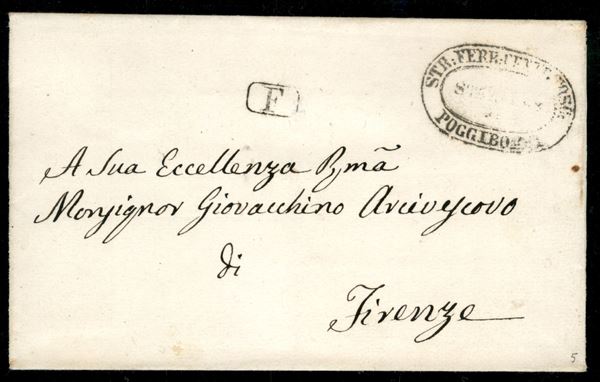 STR: FERR:
POGGIBONSI
F
A Sua Eccellenza R̃mã
Monsignor Giovacchino Arcivescovo
di
Firenze
5